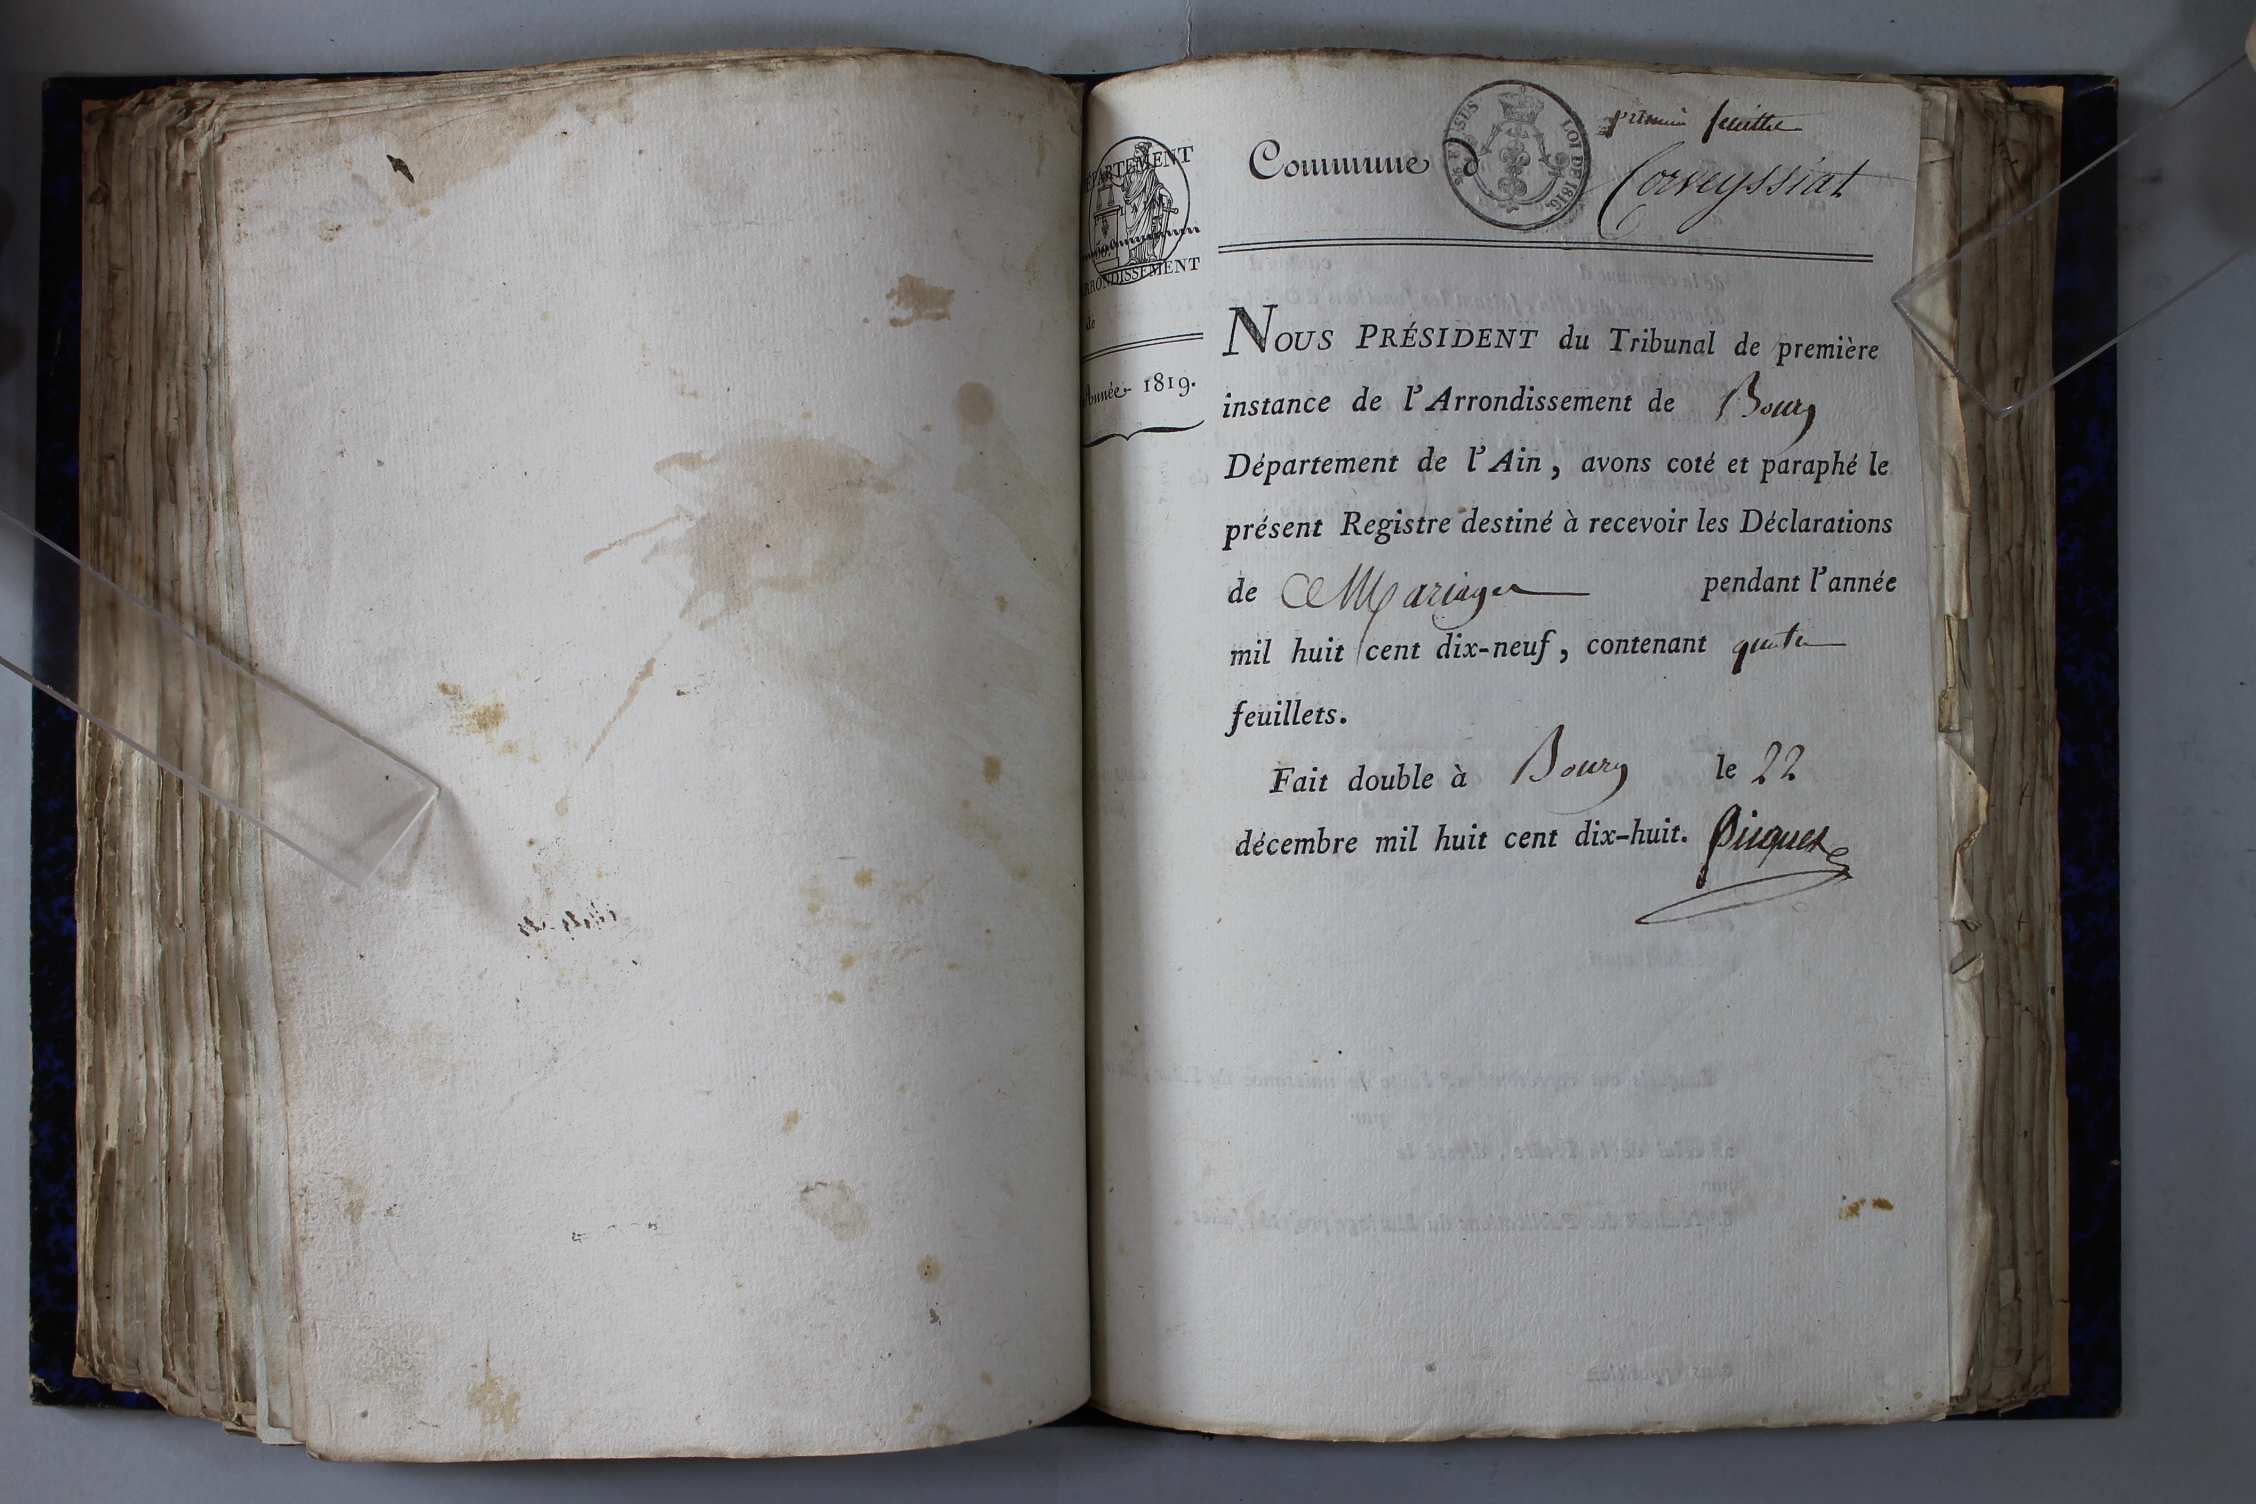 premier feuillet
Commune d Corveyssiat
EN SUS LOI DE 1816.
DÉPARTEMENT
ARRONDISSEMENT
de
Année 1819.
NOUS PRÉSIDENT du Tribunal de première
instance de l'Arrondissement de Bourg
Département de l'Ain, avons coté et paraphé le
présent Registre destiné à recevoir les Déclarations
de Mariages pendant l'année
mil huit cent dix-neuf, contenant quatre
feuillets.
Fait double à Bourg le 22
décembre mil huit cent dix-huit. Picquet